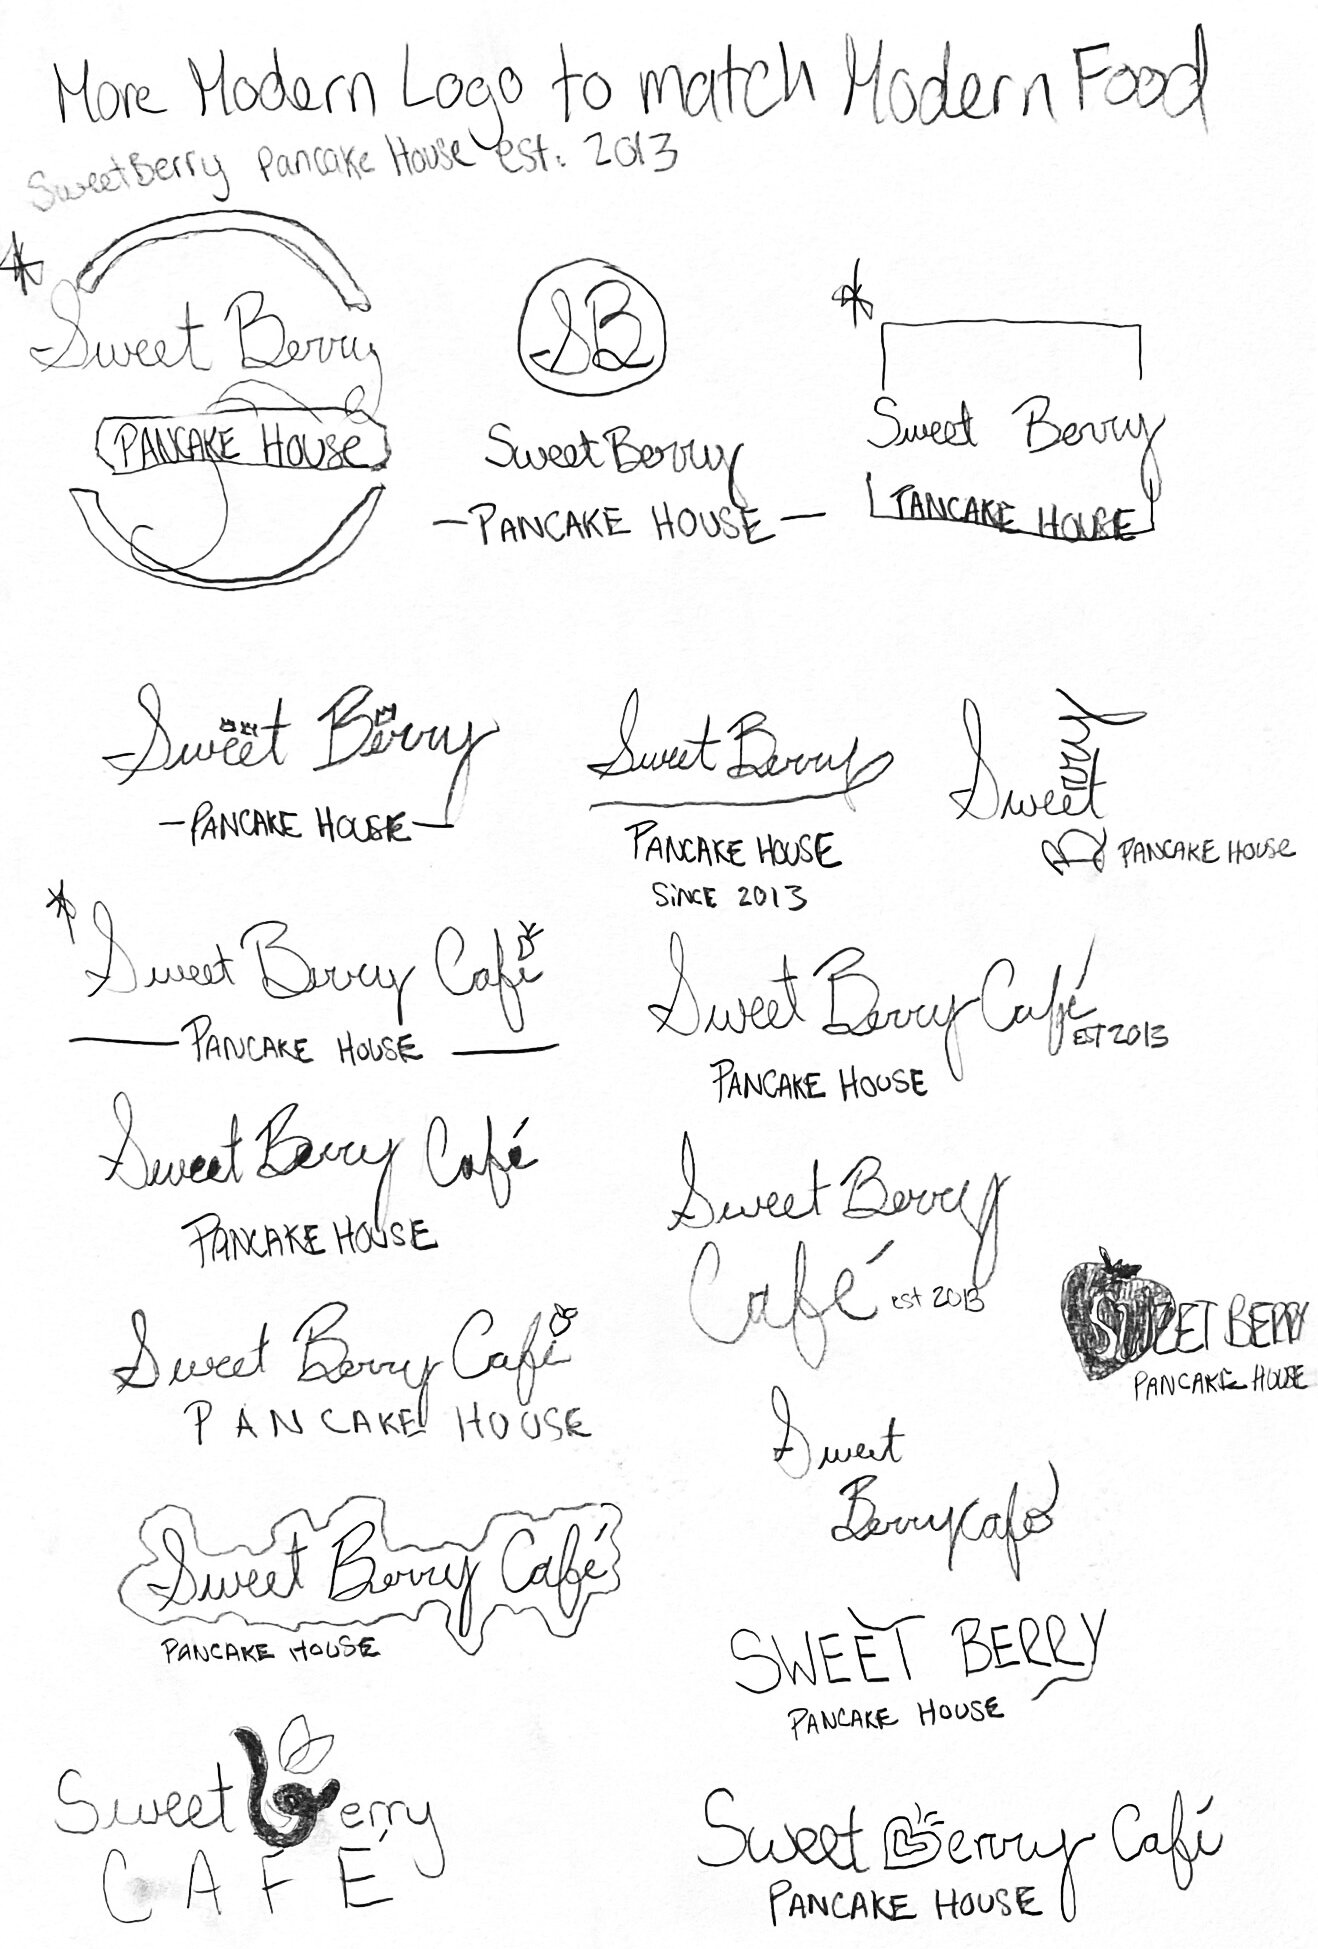 More Modern Logo to match Modern Food
SweetBerry Pancake House est. 2013
Sweet Berry
PANCAKE HOUSE
SB
SweetBerry
-PANCAKE HOUSE-
Sweet Berry
PANCAKE HOUSE
Sweet Berry
-PANCAKE HOUSE-
Sweet Berry
PANCAKE HOUSE
SINCE 2013
Sweet
Berry
PANCAKE HOUSE
Sweet Berry Café
PANCAKE HOUSE
Sweet Berry Café
EST 2013
PANCAKE HOUSE
Sweet Berry Café
PANCAKE HOUSE
Sweet Berry
Café est 2013
SWEET BERRY
PANCAKE HOUSE
Sweet Berry Café
PANCAKE HOUSE
Sweet
Berry Café
Sweet Berry Café
PANCAKE HOUSE
SWEET BERRY
PANCAKE HOUSE
Sweet berry
CAFÉ
Sweet Berry Café
PANCAKE HOUSE